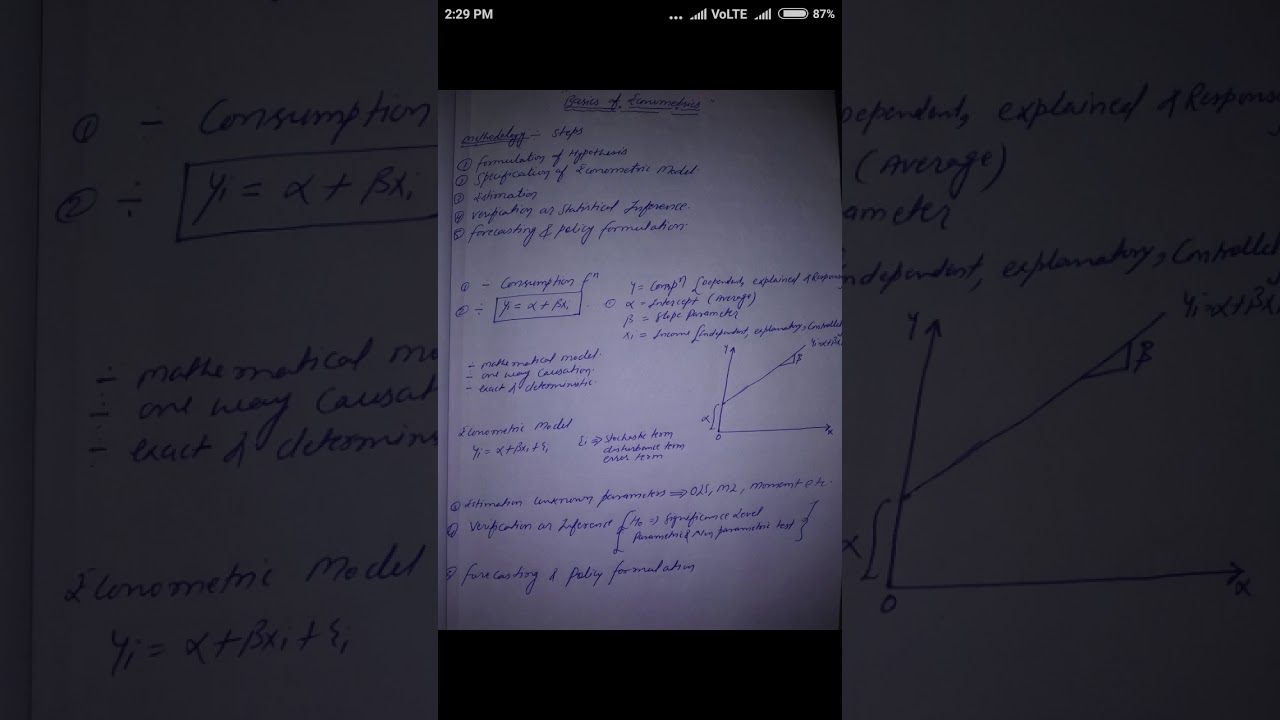 2:29 PM
VoLTE 87%
"Basics of Econometrics"
Methodology — Steps
① Formulation of Hypothesis
② Specification of Econometric Model.
③ Estimation
④ Verification or Statistical Inference.
⑤ Forecasting & policy formulation.
① - Consumption fⁿ
② ÷ yi = α + βxi
y = Compⁿ [Dependent, explained & Respons
① α = Intercept (Average)
β = Slope Parameter
xi = Income [independent, explanatory, Controlled
÷ mathematical model.
- one way causation.
- exact & deterministic.
y
yi=α+βx
β
α
0
x
Econometric Model
yi = α+βxi+εi
εi ⇒ Stochastic term
disturbance term
error term
③ Estimation unknown parameters ⇒ OLS, ML, Moment etc.
④ Verification or Inference [Ho ⇒ Significance Level
Parametric & Non parametric test]
⑤ Forecasting & Policy formulation
① ÷ Consumption
② ÷ yi = α + βxi
÷ mathematical mo
- one way causat
- exact & determinis
Econometric Model
yi = α+βxi+εi
Dependent, explained & Respons
(Average)
ameter
independent, explanatory, Controlled
y
yi=α+βx
β
α
0
x